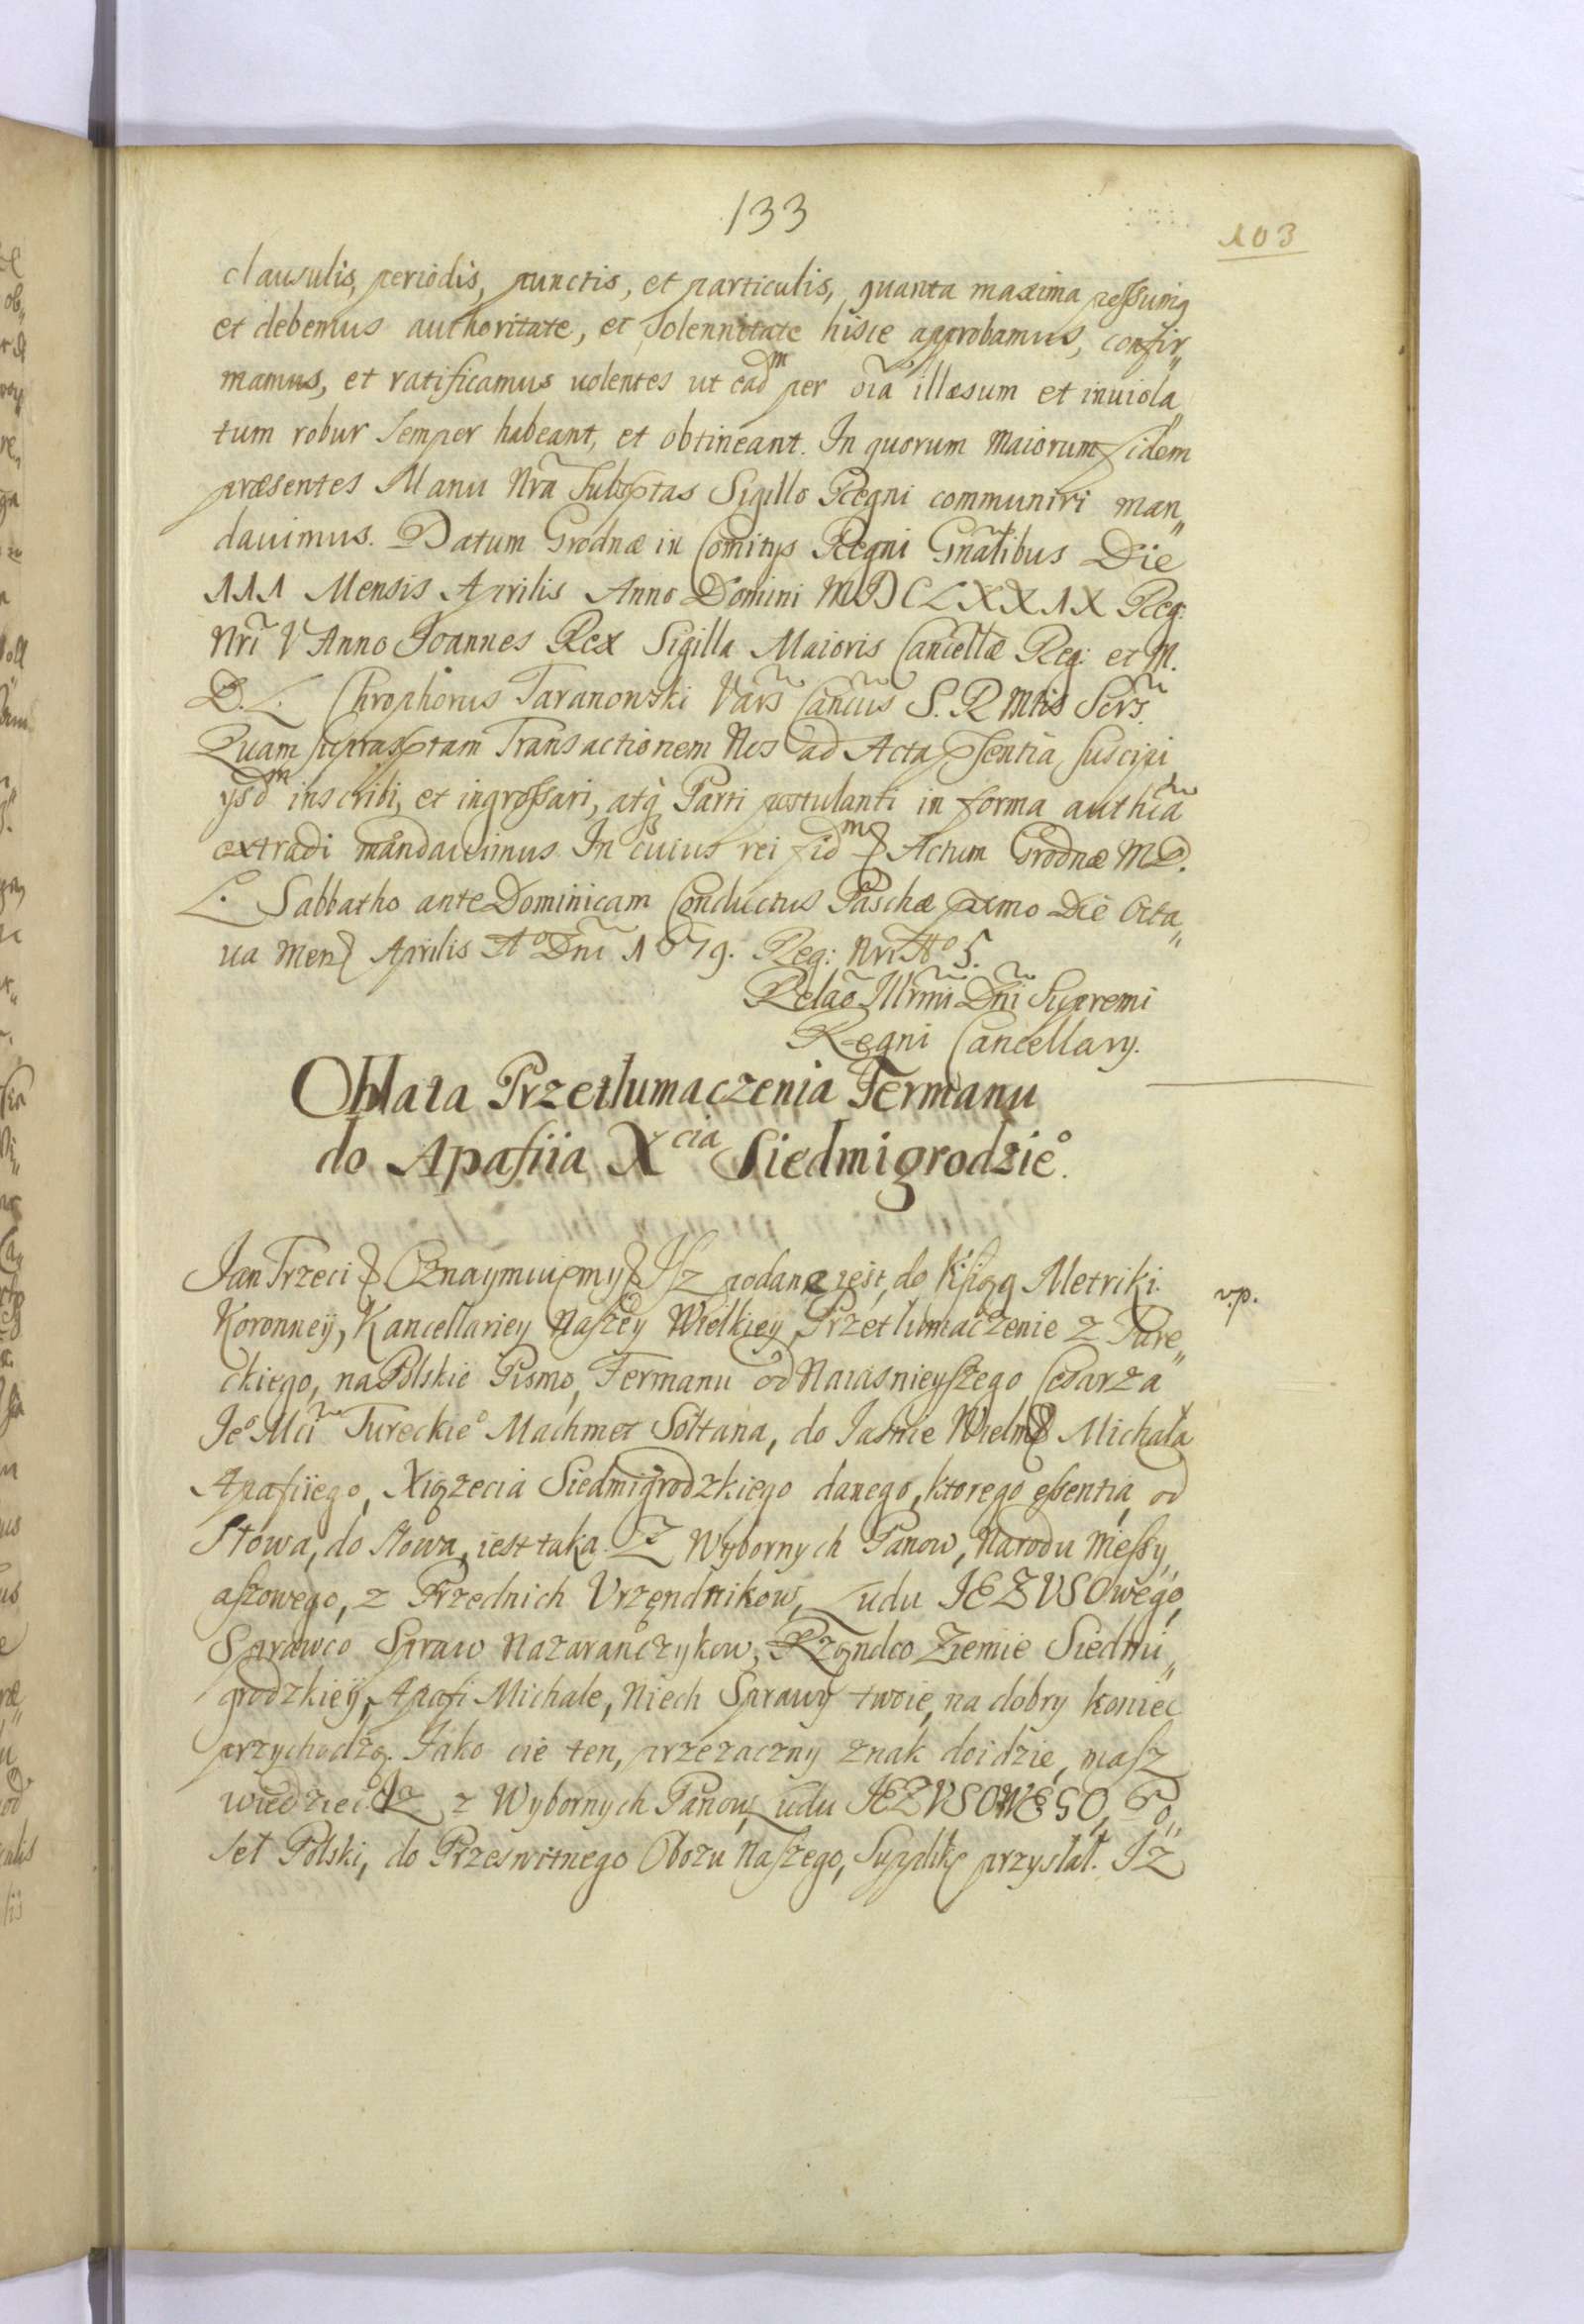 133
103
clausulis, periodis, punctis, et particulis, quanta maxima possumꝰ
et debemus authoritate, et solennitate hisce approbamus, confir„
mamus, et ratificamus uolentes ut eadᵐ per oĩa illæsum et inuiola„
tum robur semper habeant, et obtineant. In quorum maiorum fidem
præsentes Manu Nr̃a Subsptas Sigillo Regni communiri man„
dauimus. Datum Grodnæ in Comitys Regni Gñalibus Die
111 Mensis Aprilis Anno Domini MDCLXX1X Reg:
Nrĩ V Anno Joannes Rex Sigilla Maioris Cancellæ Reg: et M.
D. L. Chrophorus Taranowski Vars̃ Cancũs S. R Mtis Scrs̃.
Quam suprasptam Transactionem Nos ad Acta Psentia suscipi
ysdᵐ inscribi, et ingrossari, atq́ Parti postulanti in forma authc̃a
extradi mandauimus In cuius rei fidᵐ Actum Grodnæ M D.
L. Sabbatho ante Dominicam Conductus Paschæ pxmo Die Octa„
ua Mens Aprilis Aº Dñi 1679. Reg: Nrĩ Aº 5.
Relão Illrmĩ Dñi Supremi
Regni Cancellary.
Oblata Przetłumaczenia Fermanu
do Apafiia Xcia Siedmigrodzieº.
Jan Trzeci Oznaymuiemy Jsz podane iest, do Ksiąg Metriki
v.p.
Koronneÿ, Kancellariey Naszey Wielkiey, Przetłumaczenie z Ture„
ckiego, na Polskie Pismo, Fermanu od Naiasnieyszego Cesarza
Jeº Mci Tureckieº Machmet Sołtana, do Jasnie Wielm Michała
Apafiiego, Xiązecia Siedmigrodzkiego danego, ktorego essentia, od
Słowa, do słowa, iest taka. Z Wybornych Panow, Narodu Messy„
aszowego, z Przednich Vrzęndnikow, Ludu JEZVSOwego,
Sprawco Spraw Nazaranczykow, Rządco Ziemie Siedmi„
grodzkieÿ, Apafi Michale, Niech Sprawy twoie, na dobry koniec
przychodzą. Jako cie ten, przezaczny znak doidzie, masz
wiedziec. Jz z Wybornych Panow, Ludu JEZVSOWEGO, Po„
seł Polski, do Przeswitnego Obozu Naszego, Supplikę przysłał. Jz